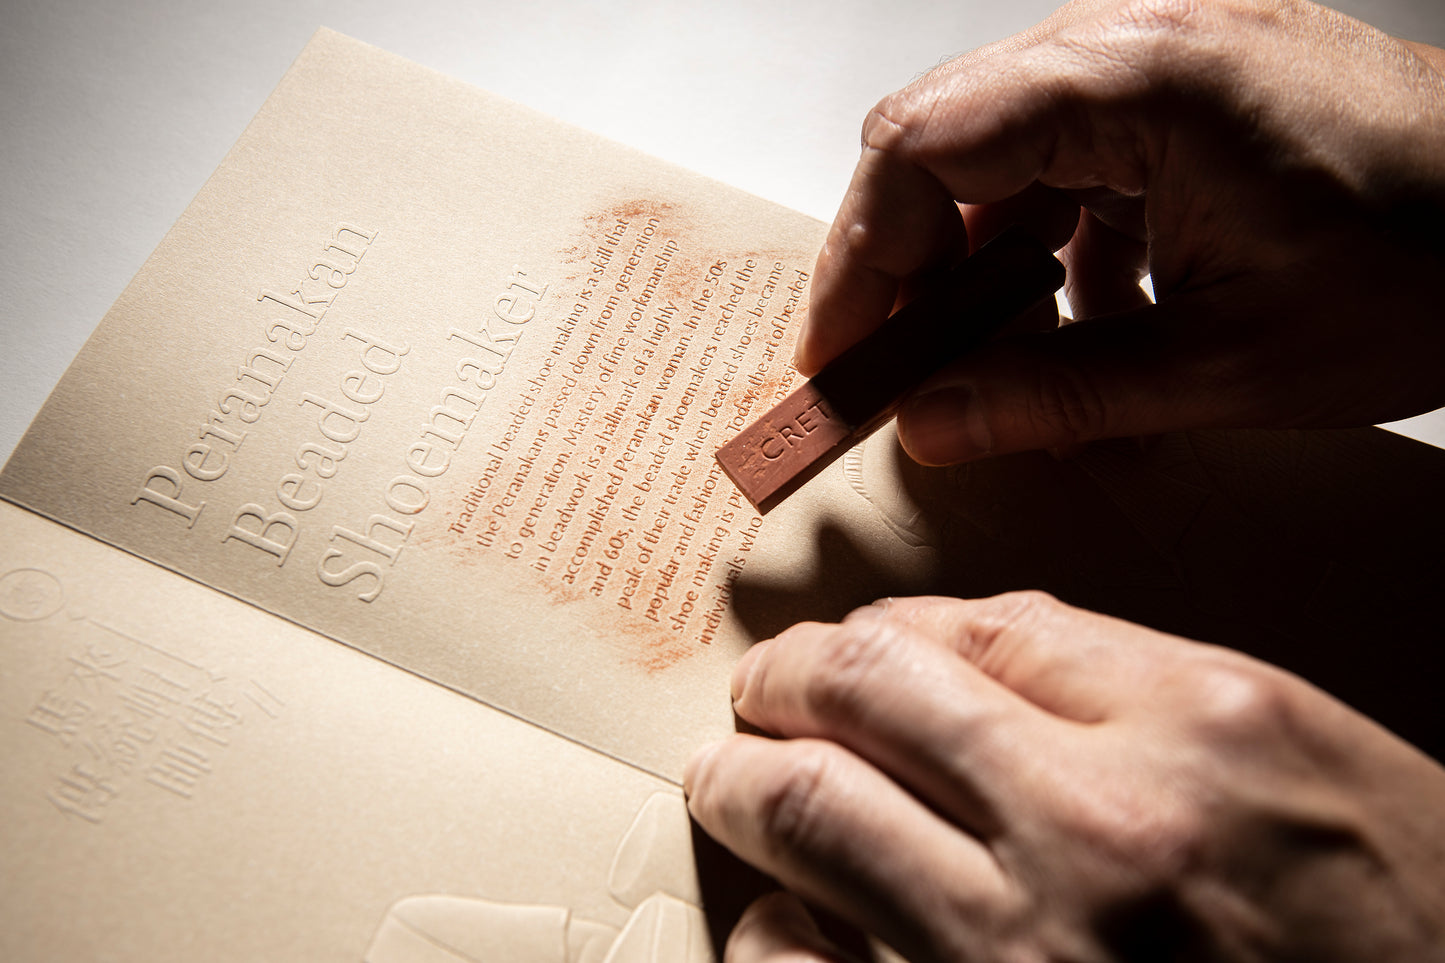 Peranakan
Beaded
Shoemaker
Traditional beaded shoe making is a skill that
the Peranakans passed down from generation
to generation. Mastery of fine workmanship
in beadwork is a hallmark of a highly
accomplished Peranakan woman. In the 50s
and 60s, the beaded shoemakers reached the
peak of their trade when beaded shoes became
popular and fashion Today, the art of beaded
shoe making is
individuals who
CRET
馬來
傳統